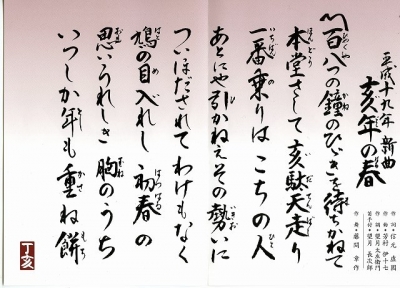 平成十九年 新曲
亥年の春
作曲・芳村 伊十七
作調・望月太左衛門
笛手付・望月 長次郎
作舞・藤間 章作
〽百八つの鐘のひびきを待ちかねて
本堂さして亥駄天走り
一番乗りはこちの人
あとにや引かねえその勢いに
ついほだされてわけもなく
鳩の目入れし初春の
思いうれしき胸のうち
いつしか年も重ね餅
丁亥